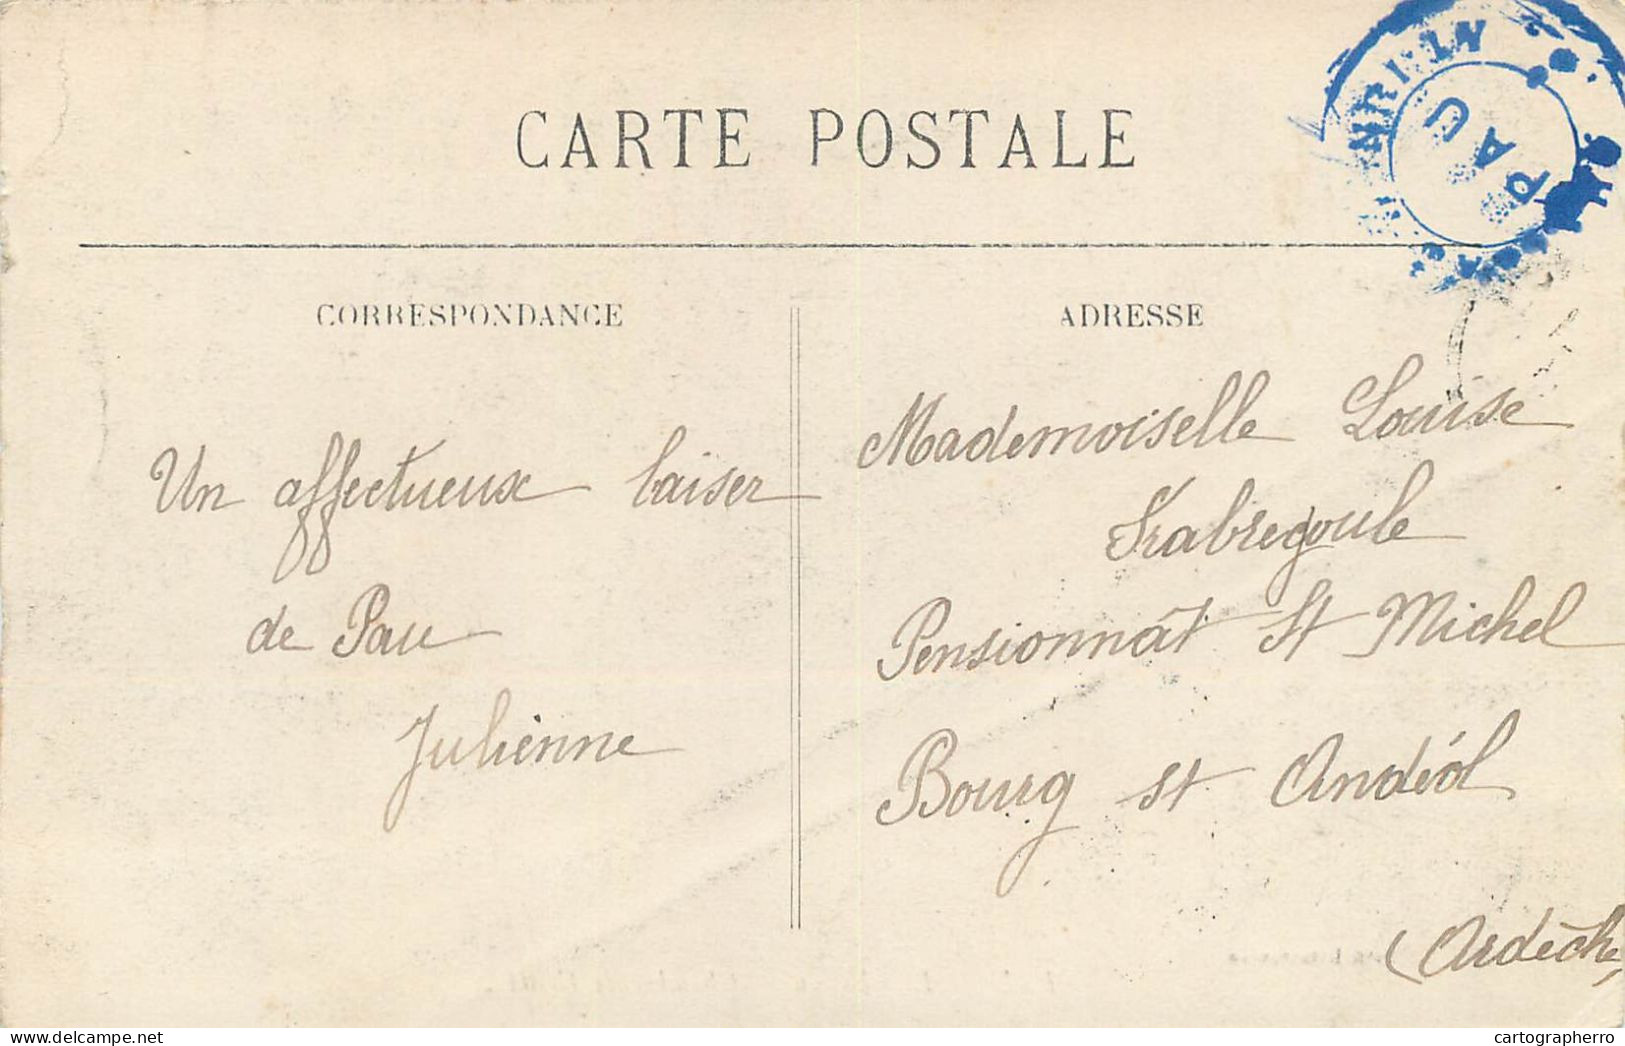 CARTE POSTALE
PAU
CORRESPONDANCE
Un affectueux baiser
de Pau
Julienne
ADRESSE
Mademoiselle Louise
Frabregoule
Pensionnât St Michel
Bourg st Andéol
(Ardèche)
cartographerro